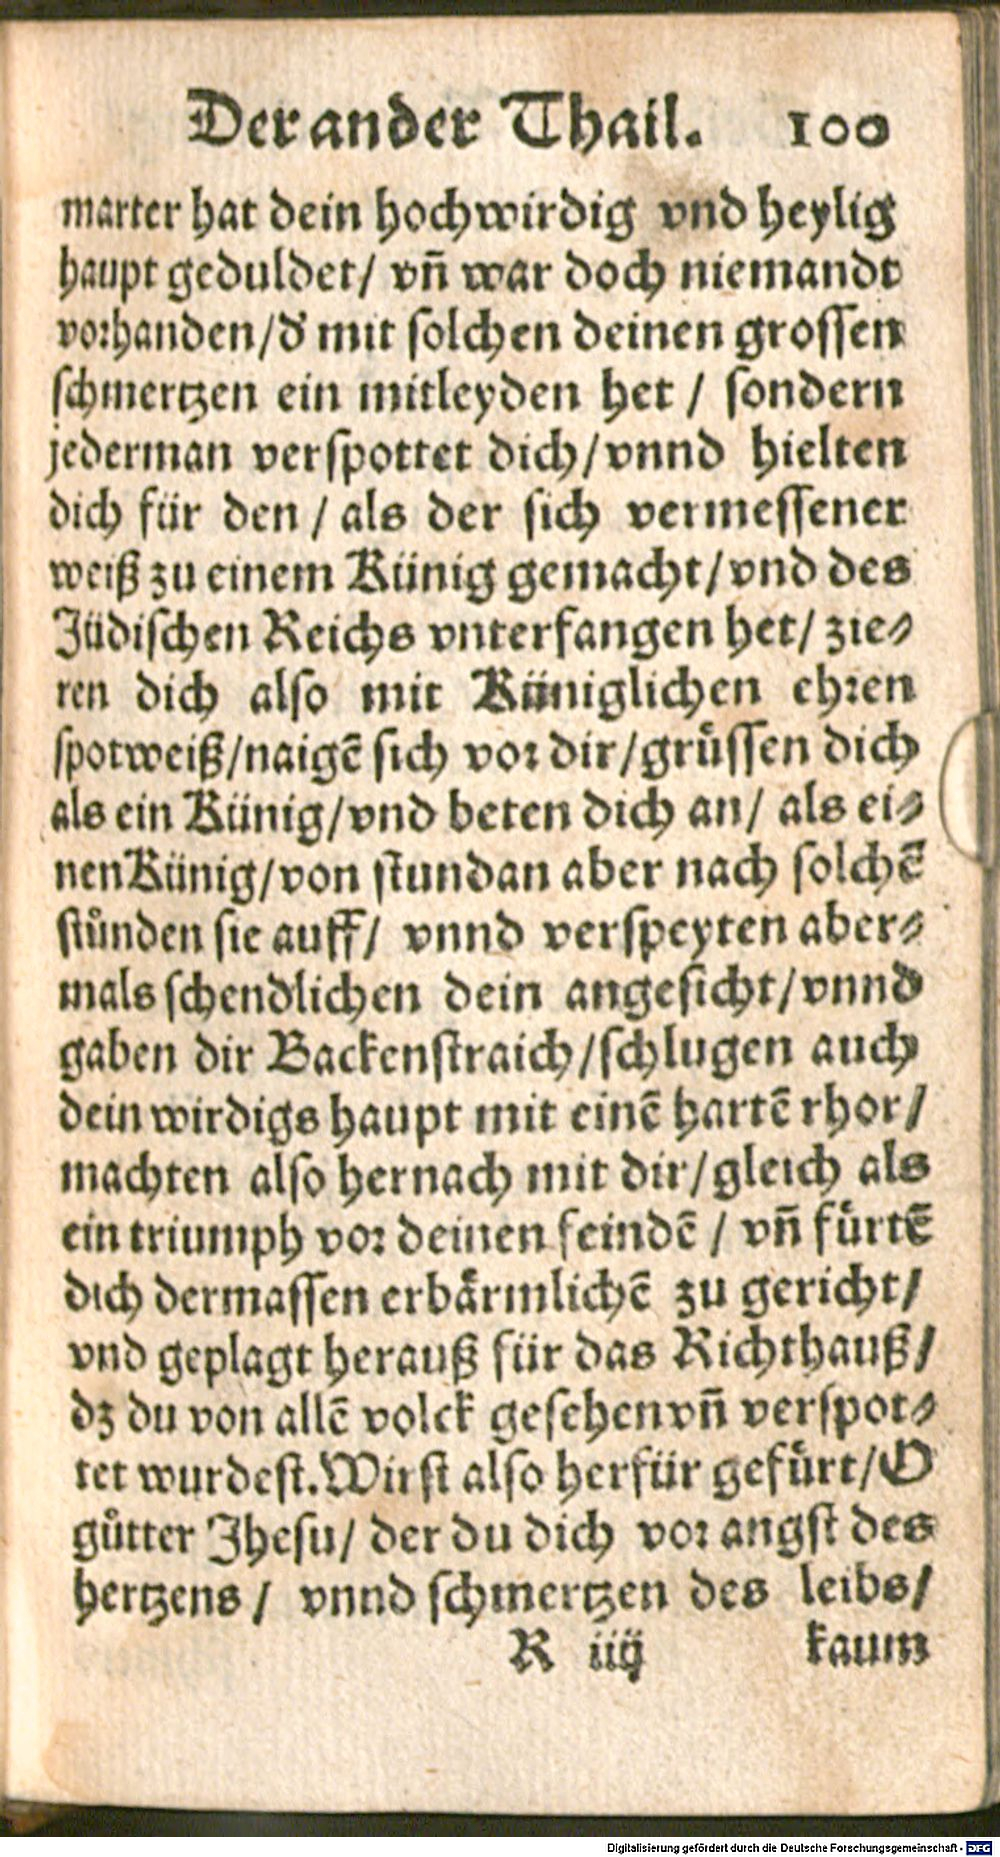 Der ander Thail. 100
marter hat dein hochwirdig vnd heylig
haupt geduldet/ vn̄ war doch niemandt
vorhanden/d' mit solchen deinen grossen
schmertzen ein mitleyden het / sondern
jederman verspottet dich/vnnd hielten
dich für den / als der sich vermessener
weiß zu einem Künig gemacht/vnd des
Jüdischen Reichs vnterfangen het/ zie⸗
ren dich also mit Küniglichen ehren
spotweiß/naigē sich vor dir/grüssen dich
als ein Künig/vnd beten dich an/ als ei⸗
nen Künig/von stundan aber nach solchē
stůnden sie auff/ vnnd verspeyten aber⸗
mals schendlichen dein angesicht/vnnd
gaben dir Backenstraich/schlugen auch
dein wirdigs haupt mit einē hartē rhor/
machten also hernach mit dir/gleich als
ein triumph vor deinen feindē / vn̄ fürtē
dich dermassen erbärmlichē zu gericht/
vnd geplagt herauß für das Richthauß/
dz du von allē volck gesehen vn̄ verspot⸗
tet wurdest. Wirst also herfür gefürt/O
gůtter Jhesu/ der du dich vor angst des
hertzens / vnnd schmertzen des leibs/
R iiij kaum
Digitalisierung gefördert durch die Deutsche Forschungsgemeinschaft - DFG